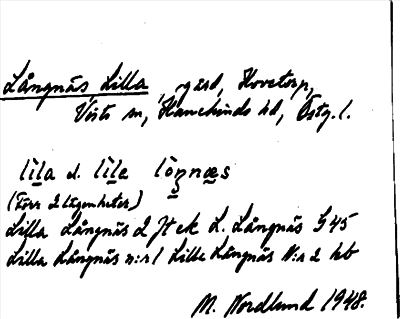 Långnäs Lilla, gård, Hovetorp,
Vists sn, Hanekinds hd, Östg. l.
lìla d. lìle lòŋnæs
(Förr 2 lägenheter)
Lilla Långnäs 2 Jt ek L. Långnäs G45
Lilla Långnäs n:r 1 Lille Långnäs N:r 2 hb
M. Nordlund 1948.